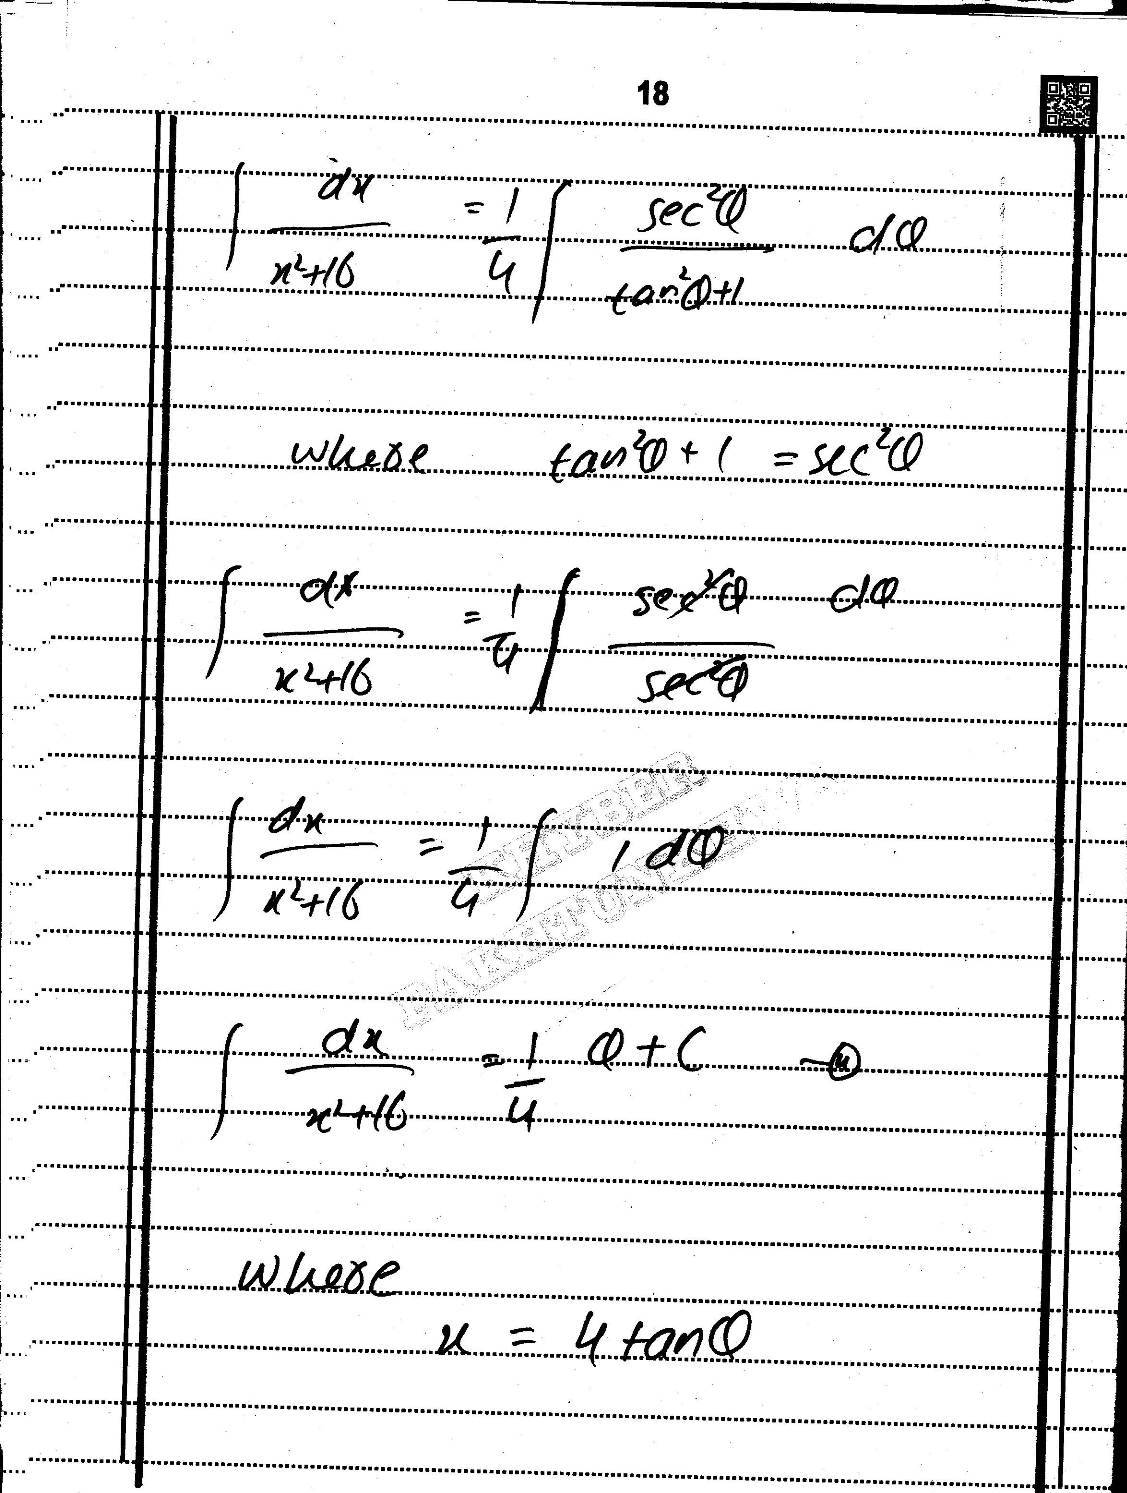 18
∫ dx / x²+16 = 1/4 ∫ sec²θ / tan²θ+1 dθ
where tan²θ + 1 = sec²θ
∫ dx / x²+16 = 1/4 ∫ sec²θ / sec²θ dθ
∫ dx / x²+16 = 1/4 ∫ 1 dθ
KHYBER
PAKHTUNKHWA
∫ dx / x²+16 = 1/4 θ + C — 4
where
x = 4 tanθ